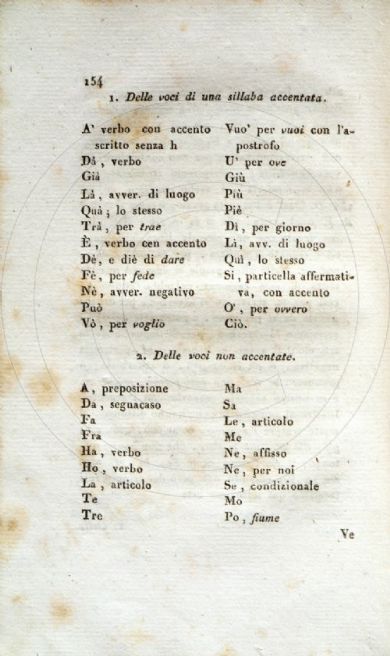 154
1. Delle voci di una sillaba accentata.
A' verbo con accento
scritto senza h
Dà, verbo
Già
Là, avver. di luogo
Quà; lo stesso
Trà, per trae
È, verbo cen accento
Dè, e diè di dare
Fè, per fede
Nè, avver. negativo
Può
Vò, per voglio
Vuo' per vuoi con l'a-
postrofo
U' per ove
Giù
Più
Piè
Dì, per giorno
Lì, avv. di luogo
Quì, lo stesso
Si, particella affermati-
va, con accento
O', per ovvero
Ciò.
2. Delle voci non accentate.
A, preposizione
Da, segnacaso
Fa
Fra
Ha, verbo
Ho, verbo
La, articolo
Te
Tre
Ma
Sa
Le, articolo
Me
Ne, affisso
Ne, per noi
Se, condizionale
Mo
Po, fiume
Ve